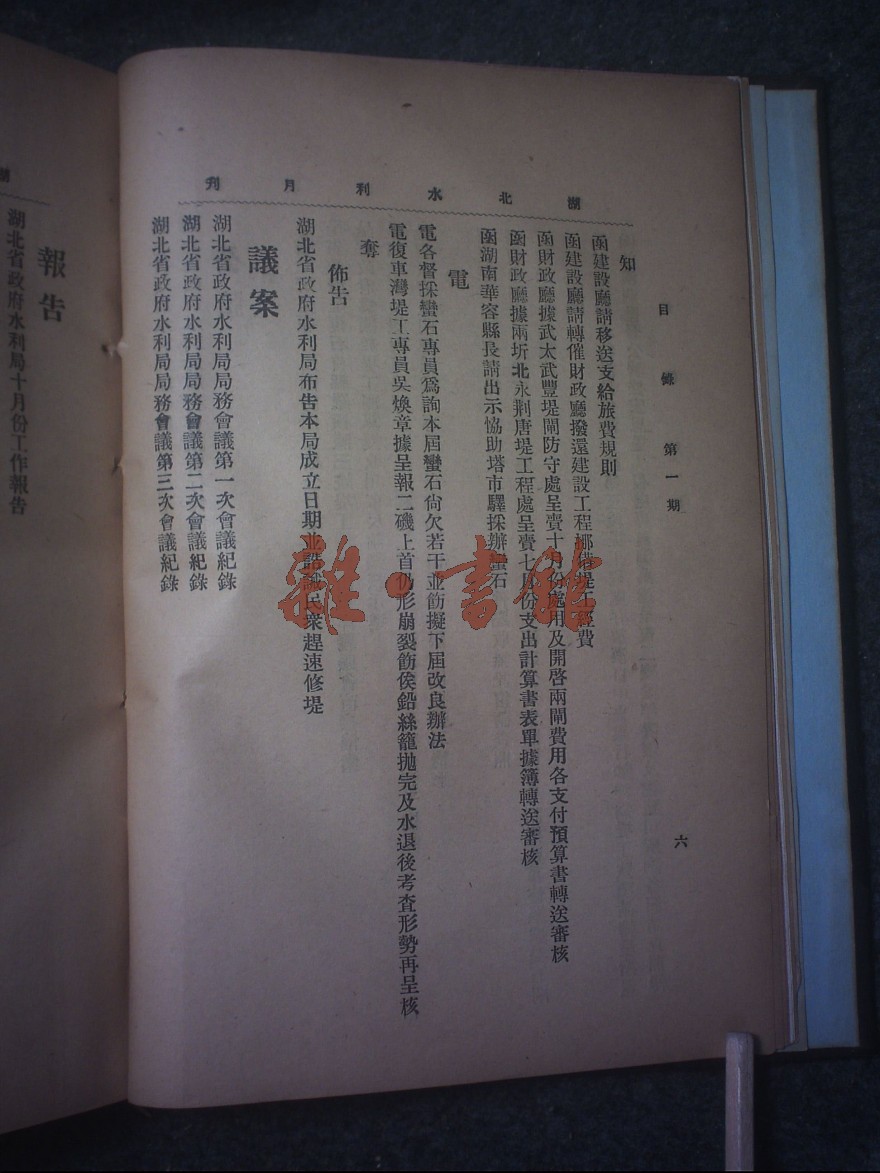 湖北水利月刊
目錄 第一期
六
知
函建設廳請移送支給旅費規則
函建設廳請轉催財政廳撥還建設工程挪借堤工經費
函財政廳據武太武豐堤閘防守處呈賚十月份處用及開啓兩閘費用各支付預算書轉送審核
函財政廳據兩圻北永荆唐堤工程處呈賚七月份支出計算書表單據簿轉送審核
函湖南華容縣長請出示協助塔市驛採辦蠻石
電
電各督採蠻石專員爲詢本屆蠻石尙欠若干並飭擬下屆改良辦法
電復車灣堤工專員吳煥章據呈報二磯上首仍形崩裂飭俟鉛絲籠拋完及水退後考査形勢再呈核
奪
佈告
湖北省政府水利局布告本局成立日期並誥誡民衆趕速修堤
議案
湖北省政府水利局局務會議第一次會議紀錄
湖北省政府水利局局務會議第二次會議紀錄
湖北省政府水利局局務會議第三次會議紀錄
報告
湖北省政府水利局十月份工作報告
雜·書館